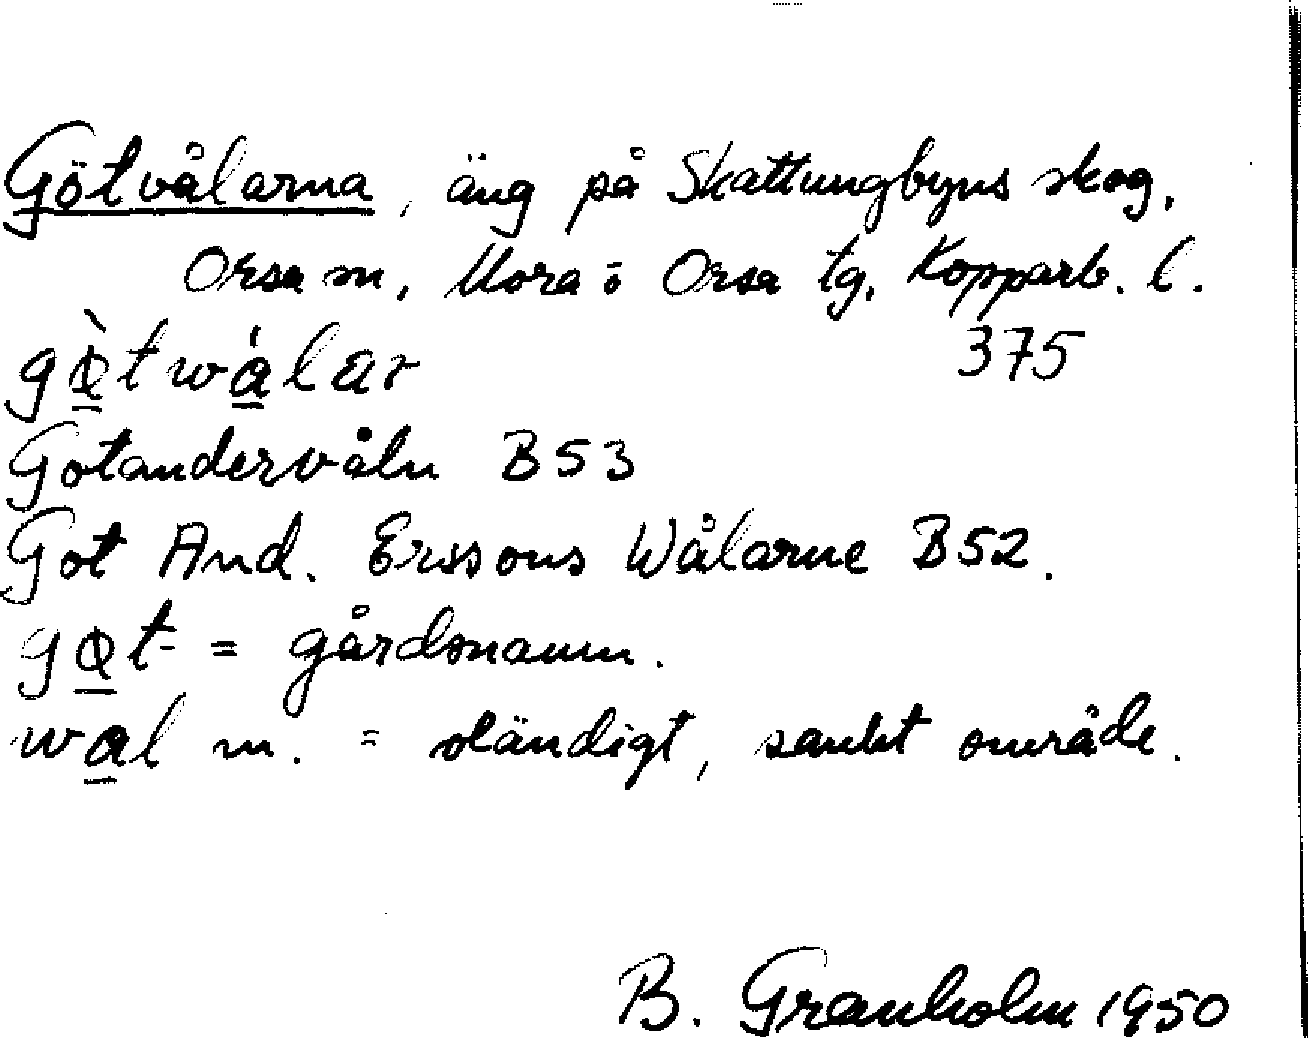 Götvålarna, äng på Skattungbyns skog.
Orsa sn, Mora o Orsa tg. Kopparb. l.
gø̱̀twa̱̍lar 375
Gotandervåln B53
Got And. Erssons Wålarne B52.
gø̱t = gårdsnamn.
wa̱l m. = oländigt, sankt område.
B. Granholm 1950